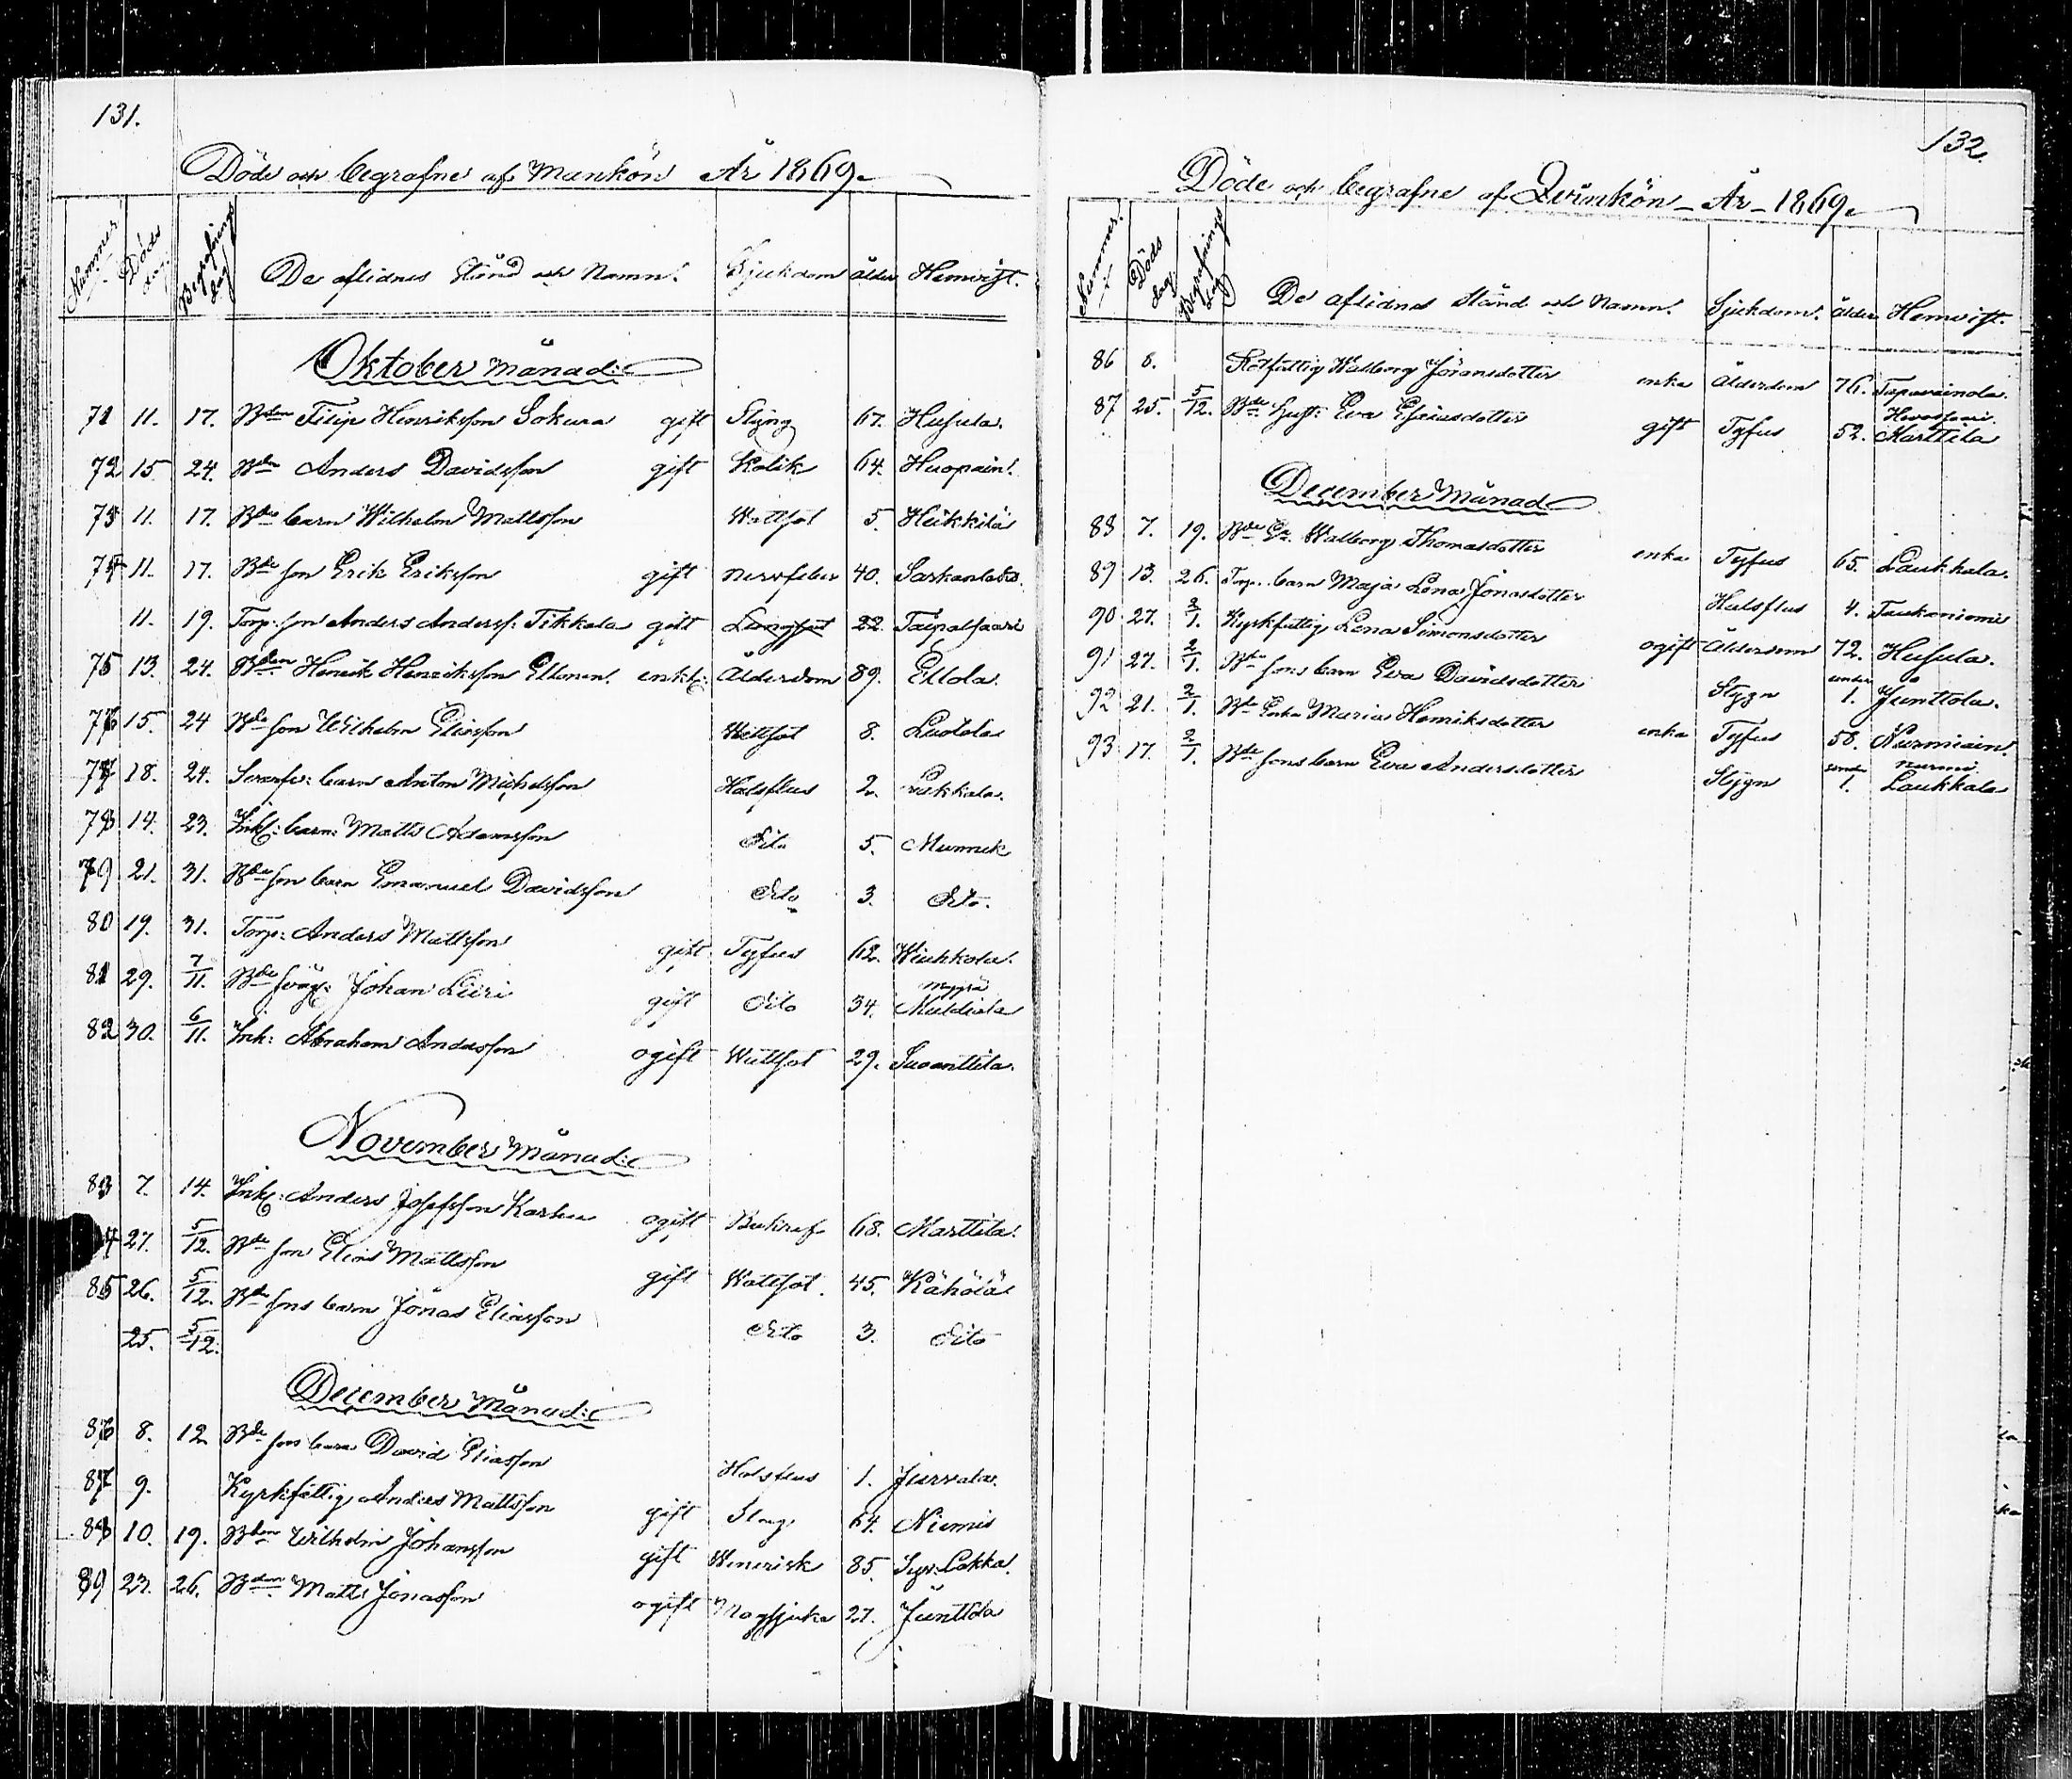 131.
Döde och begrafne af Mankön År 1869.
Nummer Döds dag. Begrafnings dag De aflidnes Stånd och Namn. Sjukdom Ålder Hemvist.
Oktober Månad:
71 11. 17. Bden Filip Henriksson Sokura gift Styng 67. Husula.
72 15 24. Bden Anders Davidsson gift Kolik 64. Huopain:
73 11. 17. Bdes barn Wilhelm Mattsson Wattsot 5. Heikkilä
74 11. 17. Bde son Erik Eriksson gift Nervfeber 40. Sarkanlaks.
11. 19. Torp: son Anders Anderss: Tikkala gift Lungsot 22. Taipalsaari
75 13. 24. Bden Henrik Henriksson Ellonen. enkl: Ålderdom 89. Ellola.
76 15. 24 Bde son Wilhelm Eliasson Wattsot 8. Luotola
77 18. 24. barn Anton Michelsson Halsflus 2. Laukkala.
78 14. 23. Inh: barn: Matts Adamsson Dito 5. Munnek
79 21. 31. Bde son barn Emanuel Davidsson Dito 3. Dito.
80 19. 31. Torp: Anders Mattsson gift Tyfus 62. Wiuhkola.
81 29. 7/11. Bde svåg: Johan Liiri gift Dito 34.
82 30. 6/11. Inh: Abraham Andersson ogift Wattsot 29. Suoanttila.
November Månad:
83 7. 14. Inh: Anders Josefsson Karhu ogift 68. Marttila.
4 27. 5/12. Bde son Elias Mattsson gift Wattsot. 45. Kähölä
85 26. 5/12. Bde sons barn Jonas Eliasson Dito 3. Dito
25. 5/12.
December Månad:
86 8. 12. Bde sons barn David Eliasson Halsflus 1. Jurvala.
87 9. Kyrkfattig Anders Mattsson gift Slag. 64. Niemis
88 10. 19. Bden Wilhelm Johansson gift Wenerisk 85. Lakka.
89 23. 26. Bden Matts Jonasson ogift Magsjuka 27. Junttola
132.
Döde och begrafne af Qvinkön År 1869.
Nummer. Döds dag Begrafnings dag De aflidnes stånd och Namn. Sjukdom. Ålder Hemvist.
86 8. Rotfattig Walborg Jöransdotter enka Ålderdom 76. Tapavainola.
87 25. 5/12. Bde hust: Eva Esaiasdotter gift Tyfus 52. Marttila
December Månad
88 7. 19. Bde Walborg Thomasdotter enka Tyfus 65. Laukkala.
89 13. 26. Torp. barn Maja Lena Jonasdotter Halsflus 4. Taukaniemi
90 27. 2/1. Kyrkfattig Lena Simonsdotter ogift Ålderdom 72. Husula.
91 27. 2/1. Bde sons barn Eva Davidsdotter Stygn under 1. Junttola.
92 21. 2/1. Bde Enka Maria Henriksdotter enka Tyfus 58. Nurmiain:
93 17. 2/1. Bde sons barn Eva Andersdotter Stygn under 1. Nurmi Laukkala